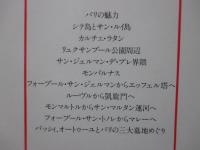 パリの魅力
シテ島とサン・ルイ島
カルチェ・ラタン
リュクサンブール公園周辺
サン・ジェルマン・デ・プレ界隈
モンパルナス
フォーブール・サン・ジェルマンからエッフェル塔へ
ルーヴルから凱旋門へ
モンマルトルからサン・マルタン運河へ
フォーブール・サン・トノレからマレーへ
パッシイ、オートゥーユとパリの三大墓地めぐり